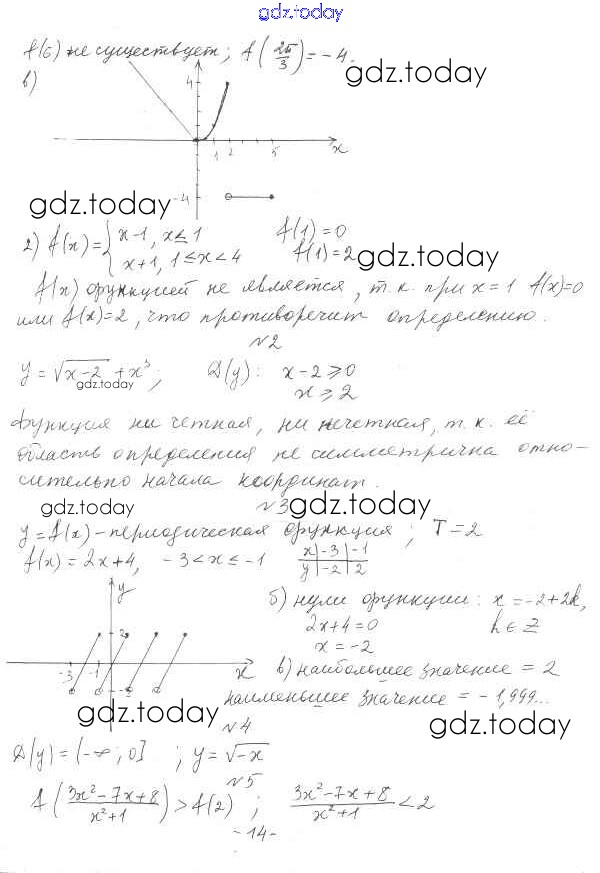 gdz.today
f(6) не существует; f(2π/3) = -4.
gdz.today
в)
4
1 2 5 x
-4
gdz.today
2) f(x) = { x-1, x ≤ 1
x+1, 1 ≤ x < 4
f(1) = 0
f(1) = 2
gdz.today
f(x) функцией не является, т.к. при x = 1 f(x)=0
или f(x) = 2, что противоречит определению.
№2
y = √(x-2) + x³; D(y): x-2 ≥ 0
gdz.today
x ≥ 2
Функция ни четная, ни нечетная, т.к. её
область определения не симметрична отно-
сительно начала координат.
gdz.today
№3
gdz.today
y = f(x) - периодическая функция; T = 2
f(x) = 2x+4, -3 < x ≤ -1
x -3 -1
y -2 2
y
2
-3 -1 x
б) нули функции: x = -2+2k,
2x+4 = 0 k ∈ Z
x = -2
в) наибольшее значение = 2
наименьшее значение = -1,999...
gdz.today
№4
gdz.today
D(y) = (-∞; 0] ; y = √-x
№5
f((3x²-7x+8)/(x²+1)) > f(2) ; (3x²-7x+8)/(x²+1) < 2
-14-